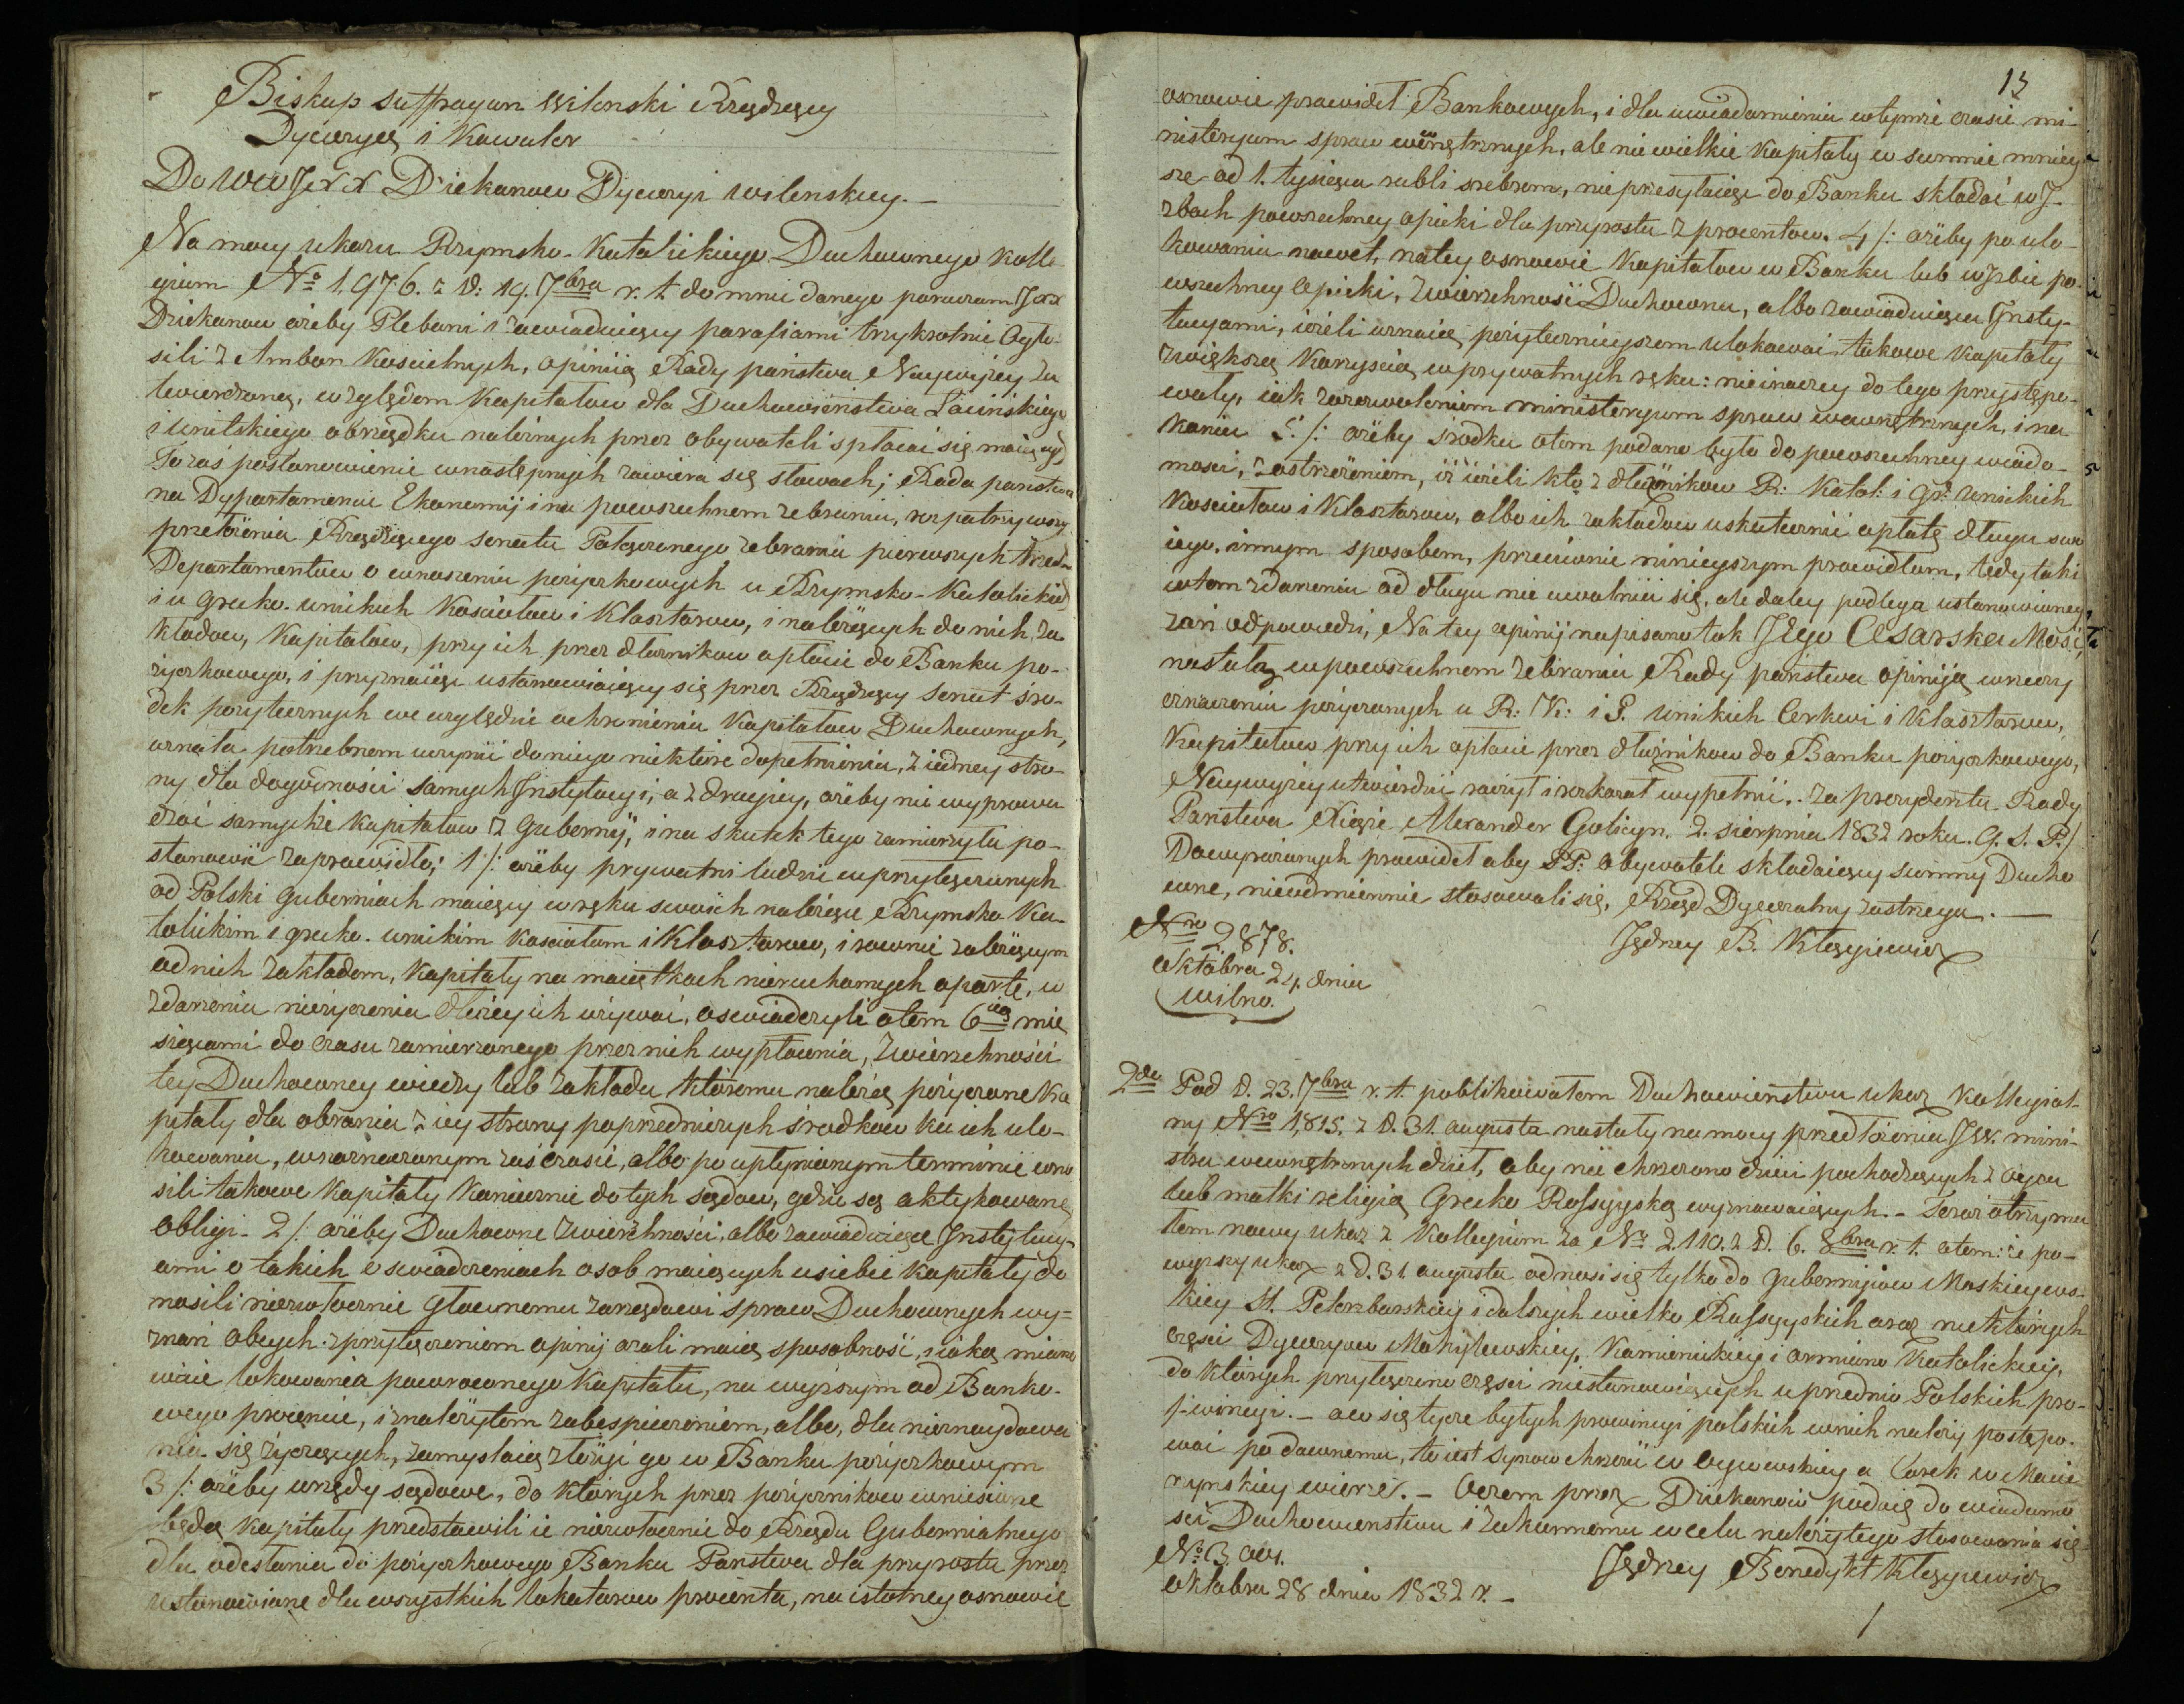 Biskup Suffragan Wilenski Rządzący
Dyecezyą i Kawaler
Do WW JXX Dziekanow Dyecezyi wilenskiey. —
Na mocy ukazu Rzymsko-Katolickiego Duchownego Kolle
gium No 1,976. z D: 19. 7bra r. t. do mnie danego poruczam JXX
Dziekanow ażeby Plebani i zawiaduiący parafiami trzykrotnie Ogło-
sili z Ambon Koscielnych, opiniią Rady państwa Naywyżey za
twierdzoną, względem Kapitałow dla Duchowieństwa Łacińskiego
i unitskiego obrządku należnych przez obywateli spłacać się maiących,
To zaś postanowienie wnastępnych zawiera się słowach; Rada panstwa
na Dypartamencie Ekonomij i na powszechnem zebraniu, rozpatrzywszy
przełożenia Rządzącego Senatu Połączonego zebrania pierwszych trzech
Departamentow o wnoszeniu pożyczkowych u Rzymsko-Katolickich
i u Greko-unickich Kościołow i Klasztorow, i należących do nich za
kładow, Kapitałow, przy ich przez dłużnikow opłacie do Banku po-
życzkowego, i przyznaiąc ustanowiaiący się przez Rządzący Senat śro-
dek pożytecznych we względzie ochronienia Kapitałow Duchownych,
uznała potrzebnem uczynić do niego niektóre dopełnienia, z iedney stro-
ny dla dogodności samych Jnstytucyi, a z drugiey, ażeby nie wyprowa
dzać samychże Kapitałow z Gubernij, i na skutek tego zamierzyła po-
stanowić za prawidło; 1/: ażeby prywatni ludzie w przyłączonych
od Polski Guberniach maiący w ręku swoich należące Rzymsko Ka-
tolickim i greko-unickim Kosciołom i Klasztorow, i rownie zależącym
od nich zakładom, Kapitały na maiętkach nieruchomych oparte, w
zdarzeniu nieżyczenia dłużey ich używać, oswiadczyli o tem 6cią mie
siącami do czasu zamierzonego przez nich wypłacenia, Zwierzchności
tey Duchowney wiedzy lub Zakładu któremu należą pożyczone Ka
pitały dla obrania z iey strony poprzedniczych środkow ku ich ulo-
kowaniu, w oznaczonym zaś czasie, albo po upłynionym terminie wno
sili takowe Kapitały Koniecznie do tych sądow, gdzie są aktykowane
Obligi. 2/: ażeby Duchowne Zwierzchności, albo zawiaduiące Jnstytucy-
ami o takich oświadczeniach osob maiących u siebie Kapitały do
nosili niezwłocznie Głownemu zarządowi spraw Duchownych wy-
znań obcych: z przyłączeniem opinij czyli maią sposobność, i iaką miano
wicie lokowania powroconego Kapitału, na wyższym od Banko-
wego procencie, i należytem zabespieczeniem, albo, dla nieznaydowa
nia się życzących, zamyslaią złożyć go w Banku pożyczkowym
3/: ażeby urzędy sądowe, do których przez pożycznikow wniesione
będą Kapitały przedstawili ie niezwłocznie do Rządu Gubernialnego
dla odesłania do pożyczkowego Banku Panstwa dla przyrostu przez
ustanowione dla wszystkich lokatorow procenta, na istotney osnowie
13
osnowie prawideł Bankowych, i dla uwiadomienia w tymże czasie mi-
nisteryum spraw wewnętrznych, ale niewielkie Kapitały w summie mniey
sze od 1. tysiąca rubli srebrem, nie przesyłaiąc do Banku składać w J-
zbach powszechney opieki dla przyrostu z procentow. 4/: ażeby po ulo-
kowaniu nawet, na tey osnowie Kapitałow w Banku lub w Jzbie po-
wszechney Opieki, Zwierzchność Duchowna, albo zawiaduiąca Jnsty-
tucyami, ieżeli uznaią pożytecznieyszem ulokować takowe Kapitały
z większą Korzyścią w prywatnych ręku: nie inaczey do tego przystępo-
wały, iak z zezwoleniem ministeryum spraw wewnętrznych, i na
koniec 5/: ażeby środku o tem podano było do powszechney wiado-
mości, z ostrzeżeniem, iż ieżeli kto z dłużnikow R: Katol: i gr: unickich
Kosciołow i Klasztorow, albo ich zakładow uskuteczni opłatę długu swo
iego, innym sposobem, przeciwnie ninieyszym prawidłom, tedy taki
w tem zdarzeniu od długu nie uwolnii się, ale daley podlega ustanowioney
zań odpowiedzi, Na tey opinij napisano tak JEgo CESARSKA Mość,
nastałą w powszechnem zebraniu Rady państwa opiniję wrzeczy
oznaczenia pożyczonych u R: K: i G. Unickich Cerkwi i Klasztorow,
Kapitałow przy ich opłacie przez dłużnikow do Banku pożyczkowego,
Naywyżey utwierdzić raczył i rozkazał wypełnić. za prezydenta Rady
Państwa Xiąże Alexander Golicyn. 2. sierpnia 1832 roku. G. S. P./
Do wyrażonych prawideł aby PP: Obywatele składaiący summy Ducho
wne, nieodmiennie stosowali się, Rząd Dyecezalny zastrzega. —
Nro 2878. Jędrzey B. Kłągiewicz
Oktobra 24. dnia
Wilno.
2do Pod D. 23. 7bra r. t. publikowałem Duchowieństwu ukaz Kollegial-
ny Nro 1,815. z D. 31. augusta nastały na mocy przedłożenia JW. mini-
stra wewnętrznych dzieł, aby nie chrzczono dzieci pochodzących z oyca
lub matki religią Greko Rossyyską wyznawaiących. - Teraz otrzyma
łem nowy ukaz z Kollegium za No 2.110. z D. 6. 8bra r. t. o tem: że po-
wyższy ukaz z d. 31 augusta odnosi się tylko do Gubernijow Moskiewsk-
kiey St. Peterzburskiey i dalszych wielko Rossyyskich oraz niektórych
częsci Dyecezyow Mohylewskiey, Kamienickiey i ormiano Katolickiey,
do których przyłączono częsci niestanowiących uprzednio Polskich pro-
wincyi. - a co się tycze byłych prowincyi polskich w nich należy postępo-
wać po dawnemu, to iest Synow chrzcić w oycowskiey a Corek w Macie
rzynskiey wierze. - O czem przez Dziekanow podaię do wiadomo
sci Duchowenstwu i zakonnemu w celu należytego stosowania się
No 3.001. Jędrzey Benedykt Kłągiewicz
Oktobra 28 dnia 1832 r. -